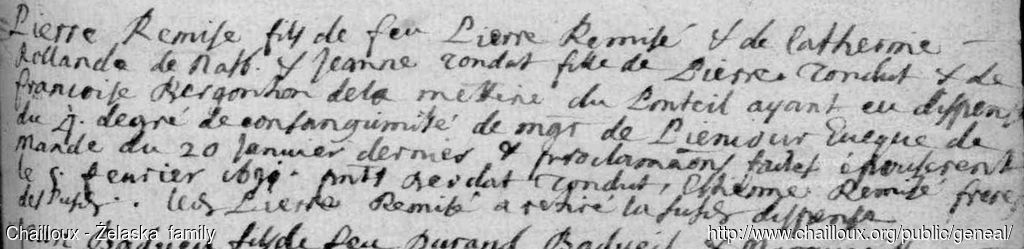 Pierre Remise fils de feu Pierre Remisé & de Catherine
Rollande de Nass. & Jeanne Tondut fille de Pierre Tondut & de
francoise Bergonhon de la mettrie du Ponteil ayant eu dispens
du 4. degré de consanguinité de mgr de Piencour Eveque de
Mande du 20 Janvier dernier & proclamaons faites épouserent
le 5. fevrier pnts Tondut, Esthienne Remisé frere
Led Pierre Remisé a retiré la dispense
fils de feu Durand
Chailloux - Żelaska family
http://www.chailloux.org/public/geneal/